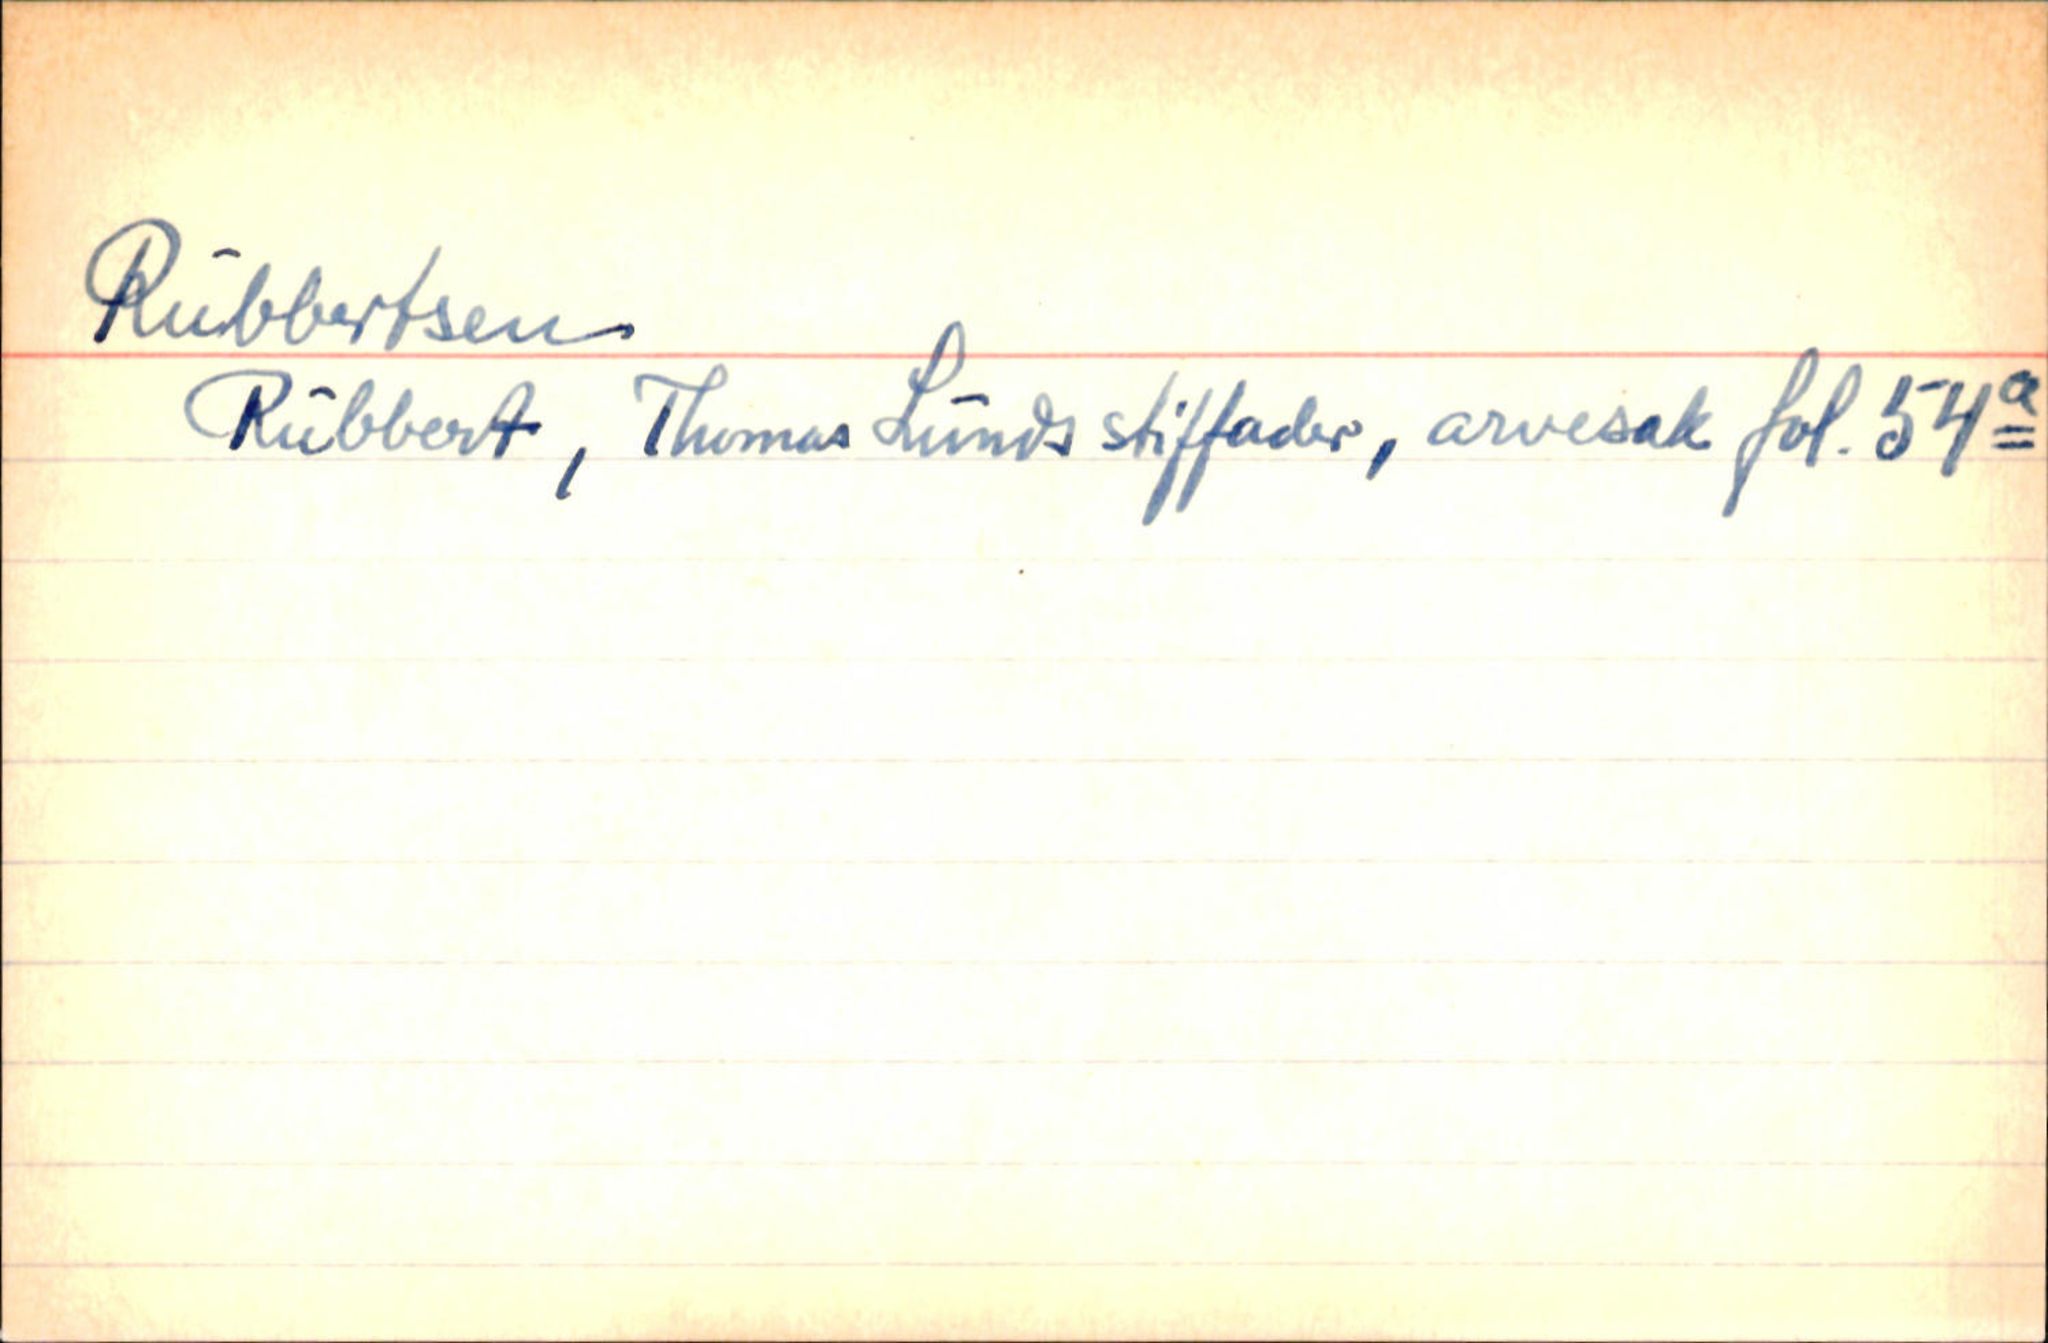 Rubbertsen
Rubbert, Thomas Lunds stiffader, arvesak fol. 54a